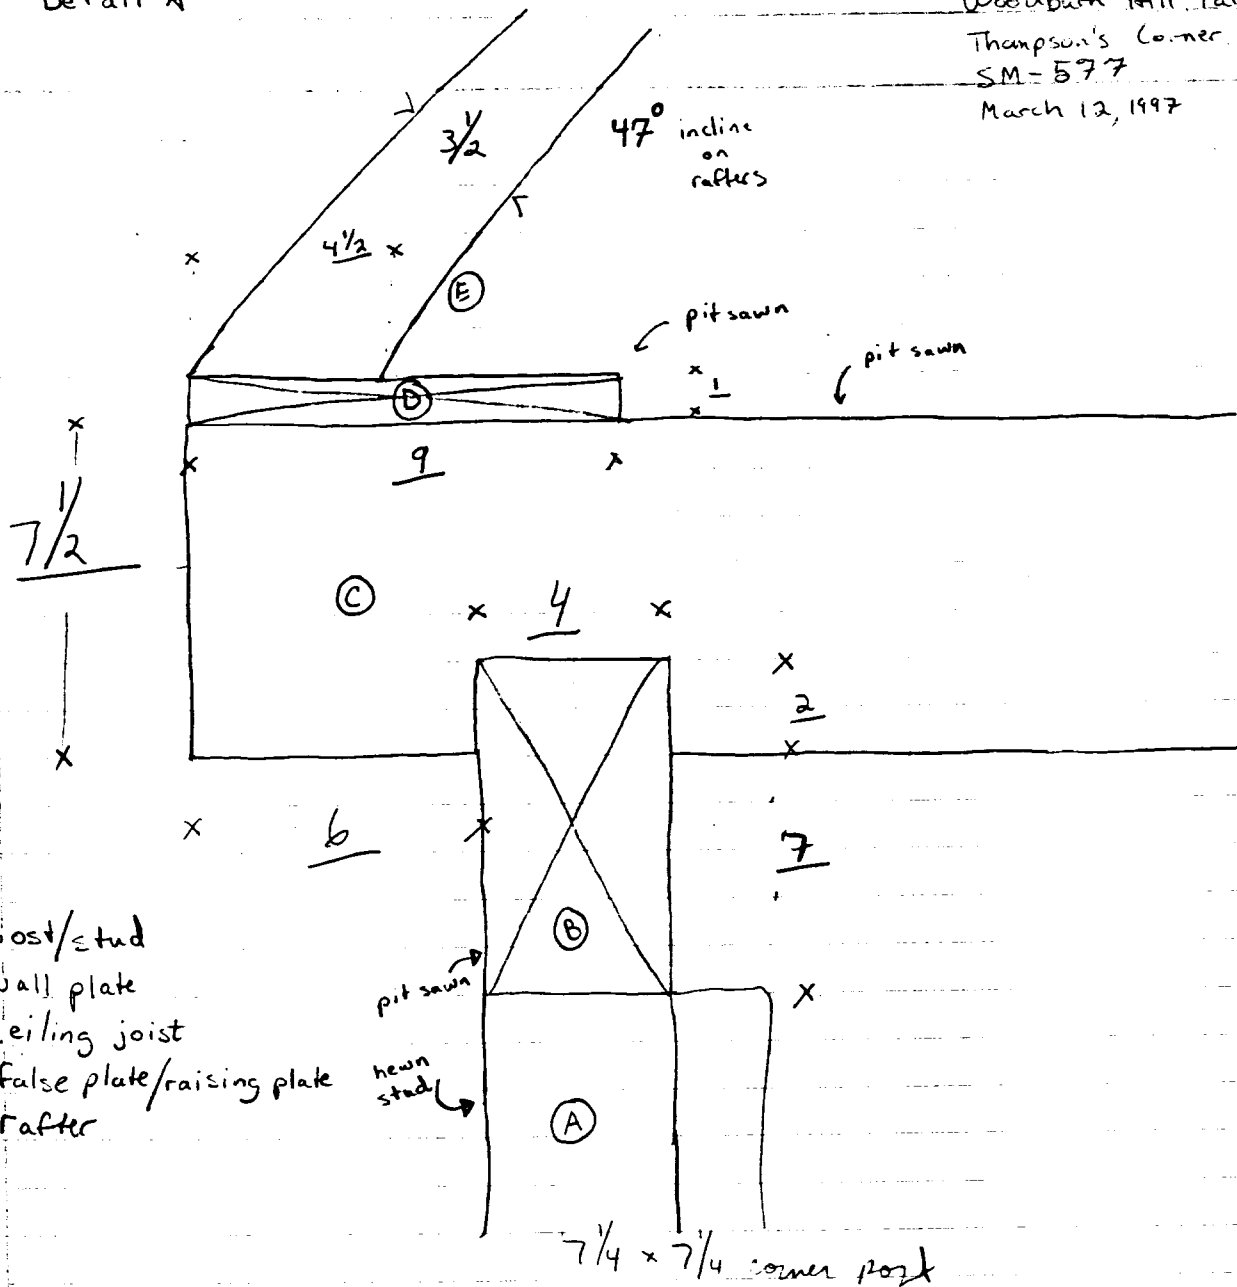 Detail A
Woodburn Hill
Thompson's Corner
SM-577
March 12, 1997
3 1/2
47° incline
on
rafters
4 1/2
E
pit sawn
pit sawn
1
D
9
7 1/2
C
4
2
6
7
B
pit sawn
post/stud
wall plate
ceiling joist
false plate/raising plate
rafter
hewn
stud
A
7 1/4 x 7 1/4 corner post